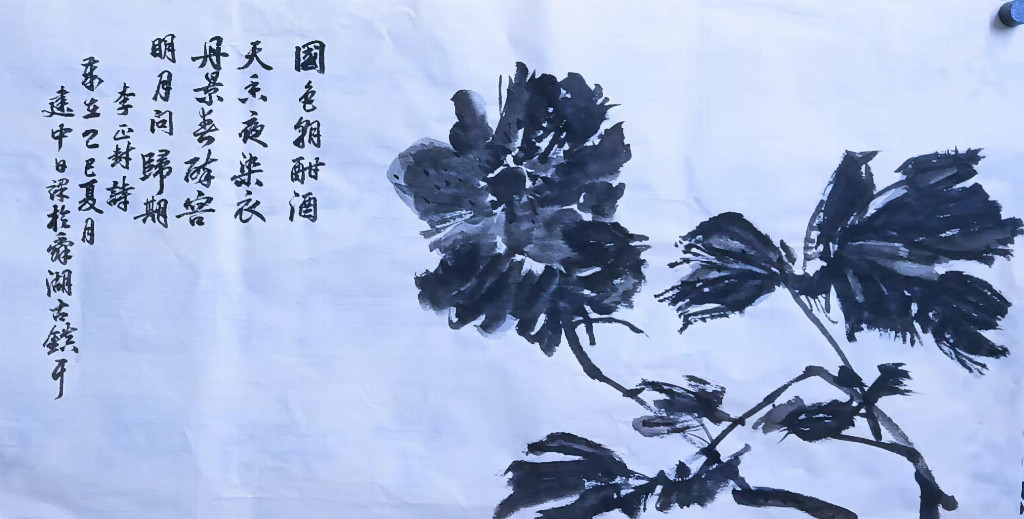 國色朝酣酒
天香夜染衣
丹景春醉容
明月問歸期
李正封詩
歲在乙巳夏月
建中日課於舜湖古鎮